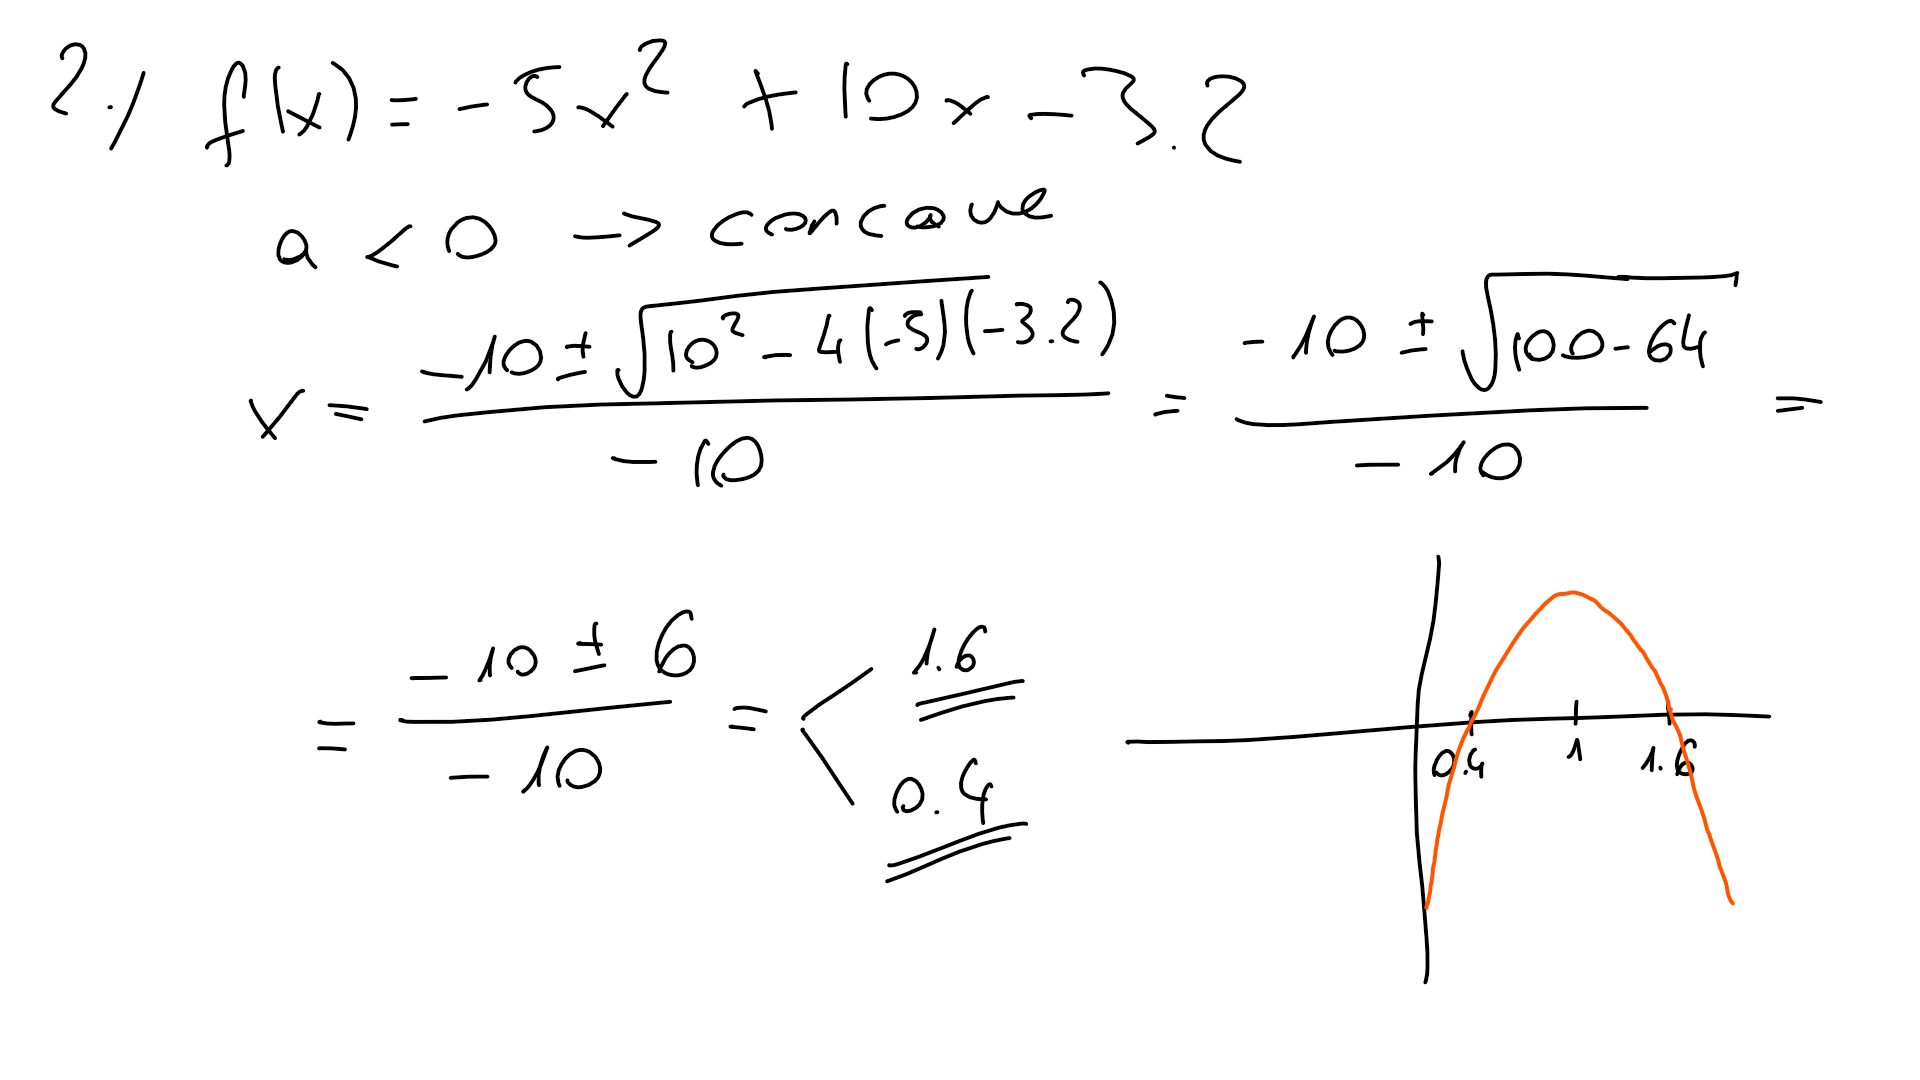 2./ f(x) = -5x² + 10x - 3.2
a < 0 -> concave
x = (-10 ± √(10² - 4(-5)(-3.2))) / -10 = (-10 ± √(100 - 64)) / -10 =
= (-10 ± 6) / -10 = < 1.6
0.4
0.4 1 1.6